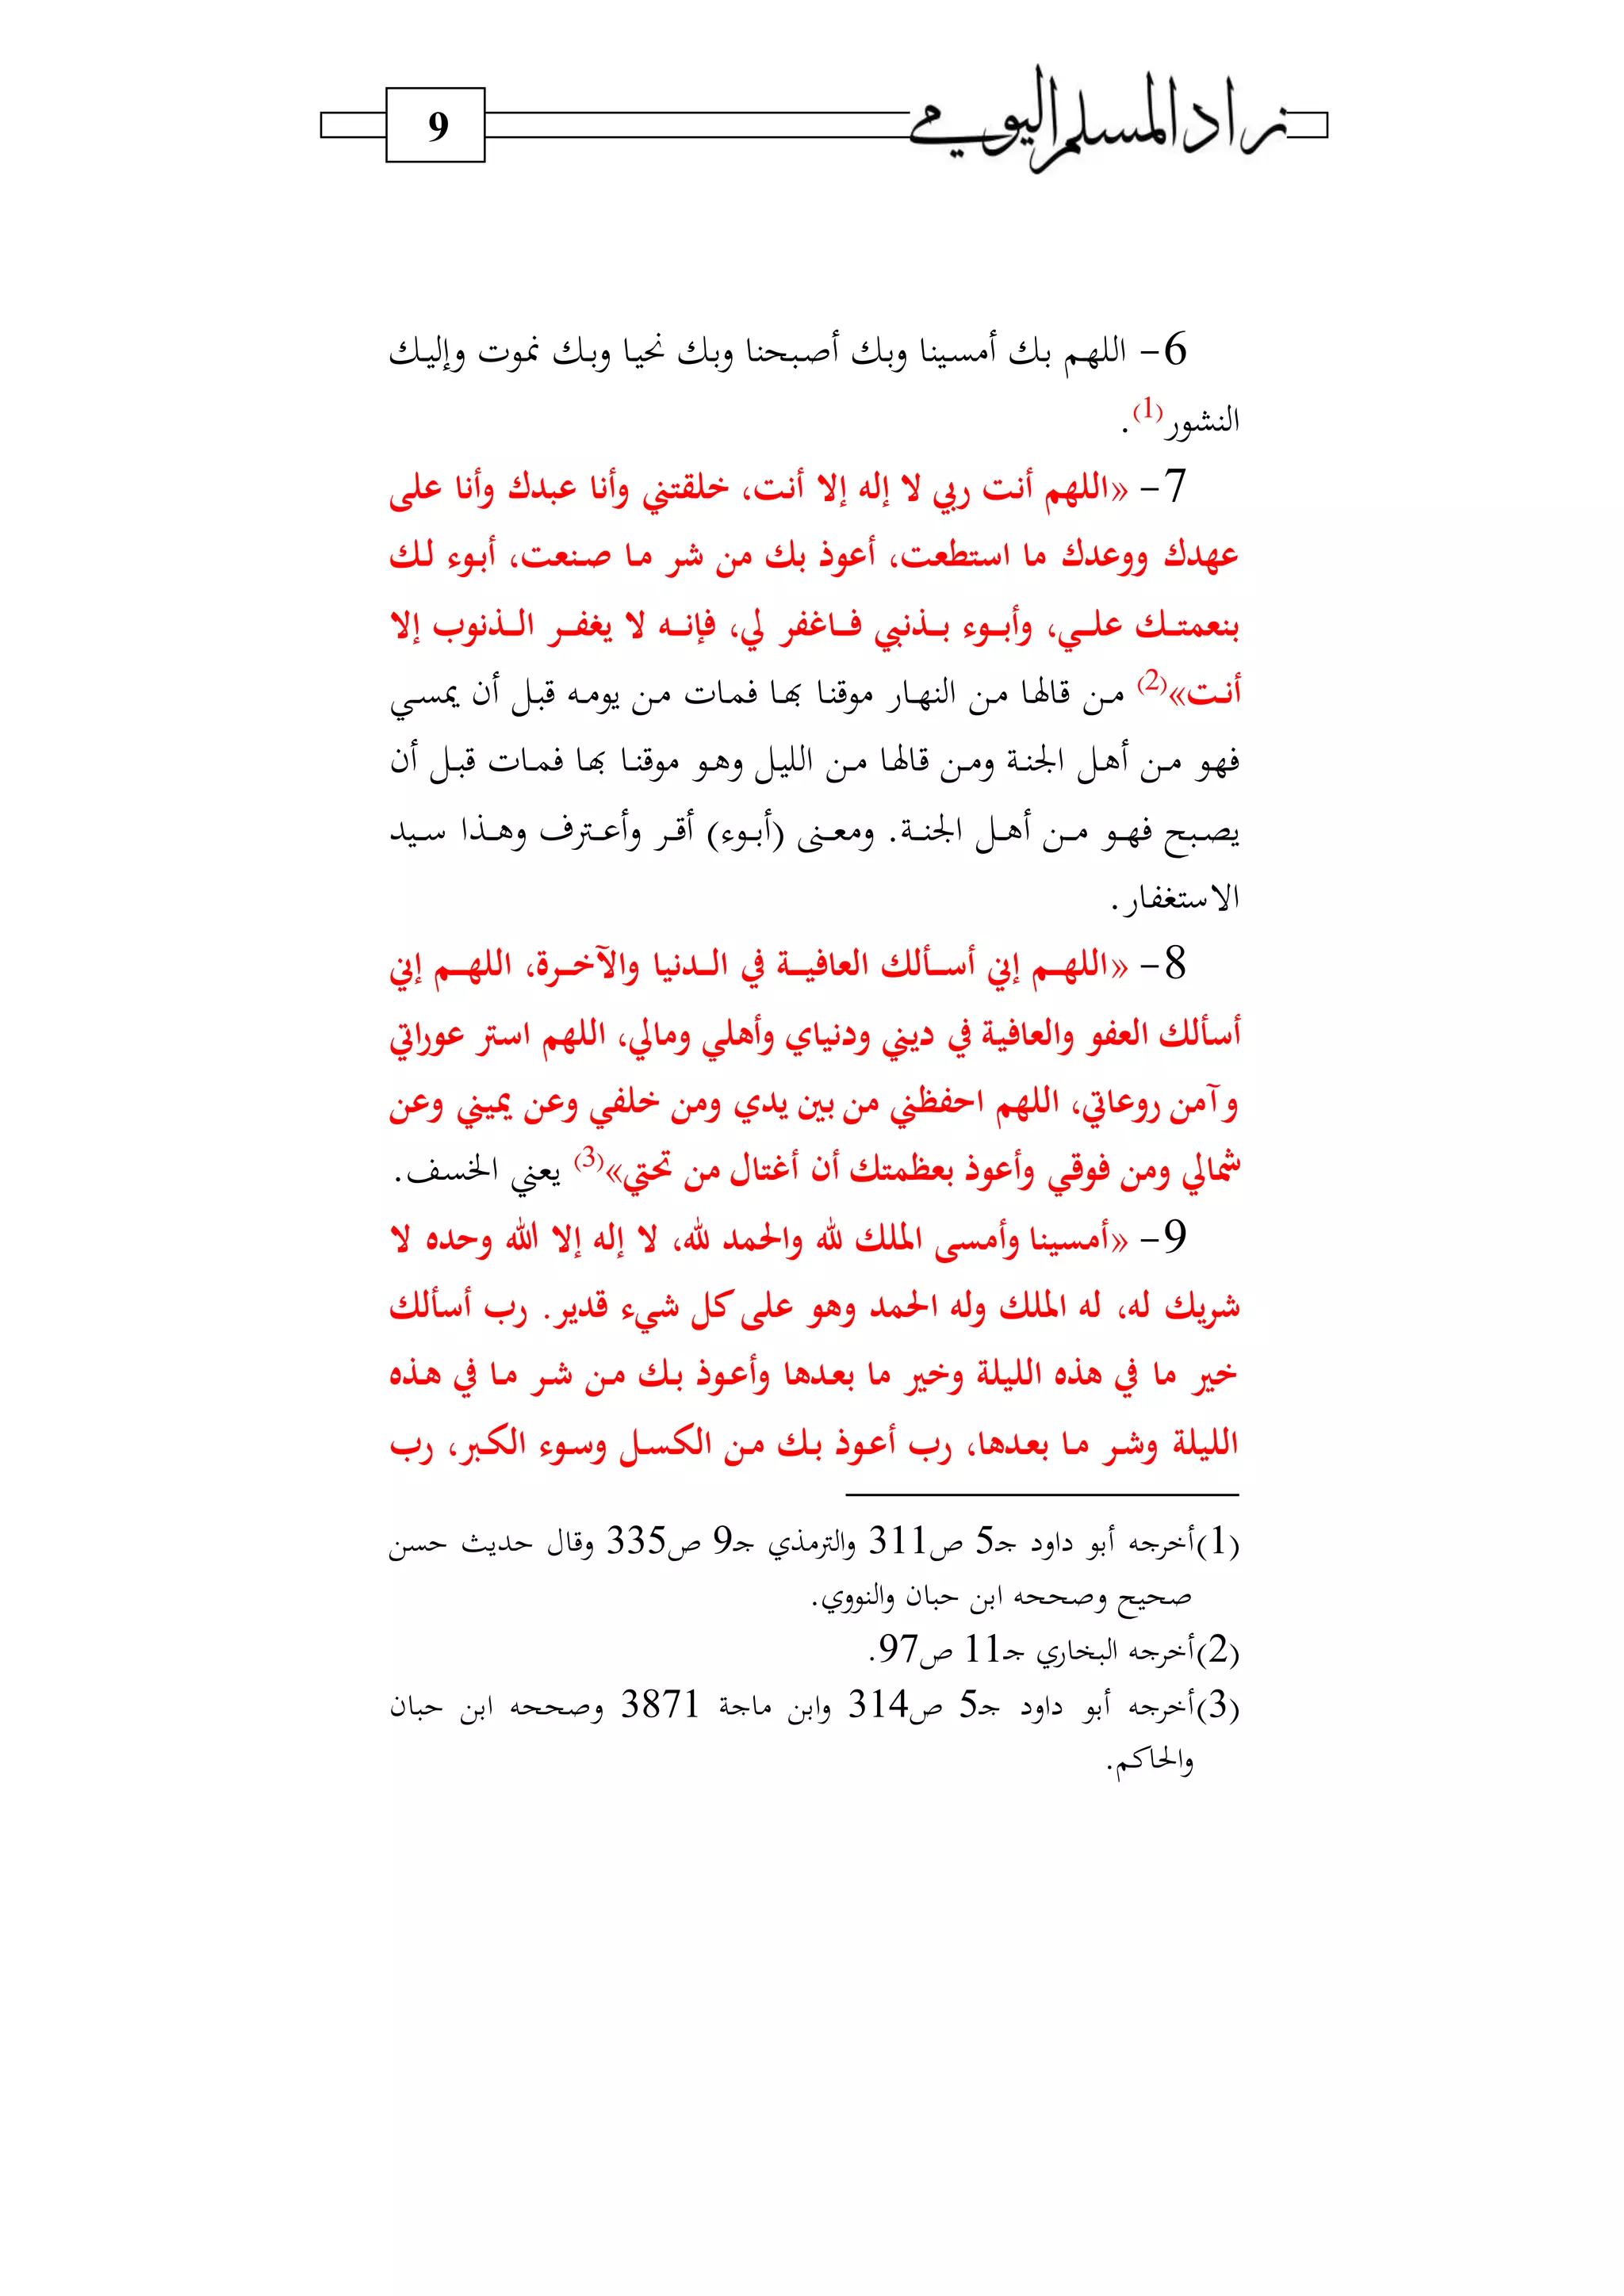 زاد المسلم اليومي
9
6- اللهم بك أمسينا وبك أصبحنا وبك نحيا وبك نموت وإليك
النشور(1).
7- «اللهم أنت ربي لا إله إلا أنت، خلقتني وأنا عبدك وأنا على
عهدك ووعدك ما استطعت، أعوذ بك من شر ما صنعت، أبوء لك
بنعمتك علي، وأبوء بذنبي فاغفر لي، فإنه لا يغفر الذنوب إلا
أنت»(2) من قالها من النهار موقنا بها فمات من يومه قبل أن يمسي
فهو من أهل الجنة ومن قالها من الليل وهو موقنا بها فمات قبل أن
يصبح فهو من أهل الجنة. ومعنى (أبوء) أقر وأعترف وهذا سيد
الاستغفار.
8- «اللهم إني أسألك العافية في الدنيا والآخرة، اللهم إني
أسألك العفو والعافية في ديني ودنياي وأهلي ومالي، اللهم استر عوراتي
وآمن روعاتي، اللهم احفظني من بين يدي ومن خلفي وعن يميني وعن
شمالي ومن فوقي وأعوذ بعظمتك أن أغتال من تحتي»(3) يعني الخسف.
9- «أمسينا وأمسى الملك لله والحمد لله، لا إله إلا الله وحده لا
شريك له، له الملك وله الحمد وهو على كل شيء قدير. رب أسألك
خير ما في هذه الليلة وخير ما بعدها وأعوذ بك من شر ما في هذه
الليلة وشر ما بعدها، رب أعوذ بك من الكسل وسوء الكبر، رب
(1)أخرجه أبو داود جـ5 ص311 والترمذي جـ9 ص335 وقال حديث حسن
صحيح وصححه ابن حبان والنووي.
(2)أخرجه البخاري جـ11 ص97.
(3)أخرجه أبو داود جـ5 ص314 وابن ماجة 3871 وصححه ابن حبان
والحاكم.